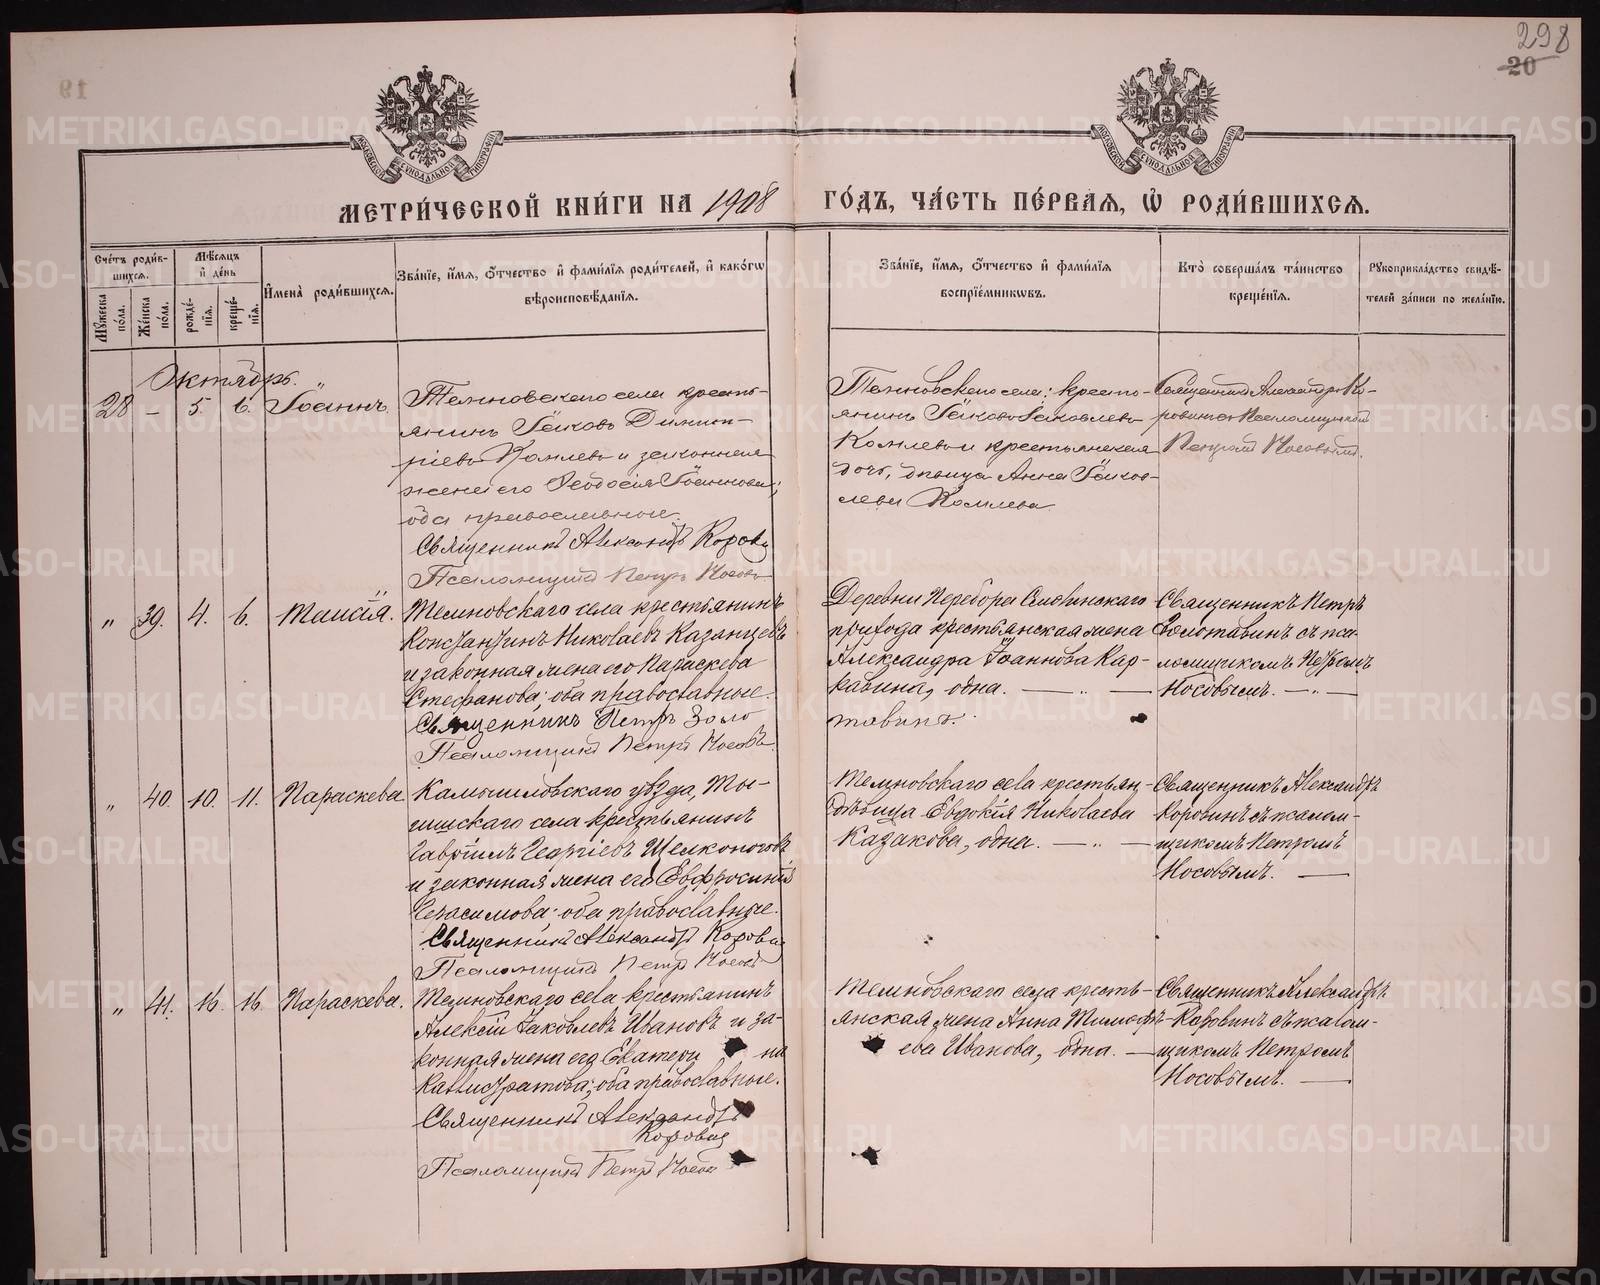 298
20
МЕТРИ́ЧЕСКОЙ КНИ́ГИ НА 1908 ГО́ДЪ, ЧА́СТЬ ПЕ́РВАЯ, Ѡ҆ РОДИ́ВШИХСЯ.
Сче́тъ роди́вшихся.
Му́жеска по́ла.
Же́нска по́ла.
Мѣ́сяцъ и҆ де́нь
рожде́нїя.
креще́нїя.
И҆мена̀ роди́вшихся.
Зва́нїе, и҆́мя, ѻ҆́тчество и҆ фами́лїя роди́телей, и҆ како́гѡ
вѣроисповѣ́данїя.
Зва́нїе, и҆́мя, ѻ҆́тчество и҆ фами́лїя
воспрїе́мникѡвъ.
Кто̀ соверша́лъ та́инство
креще́нїя.
Рꙋкоприкла́дство свидѣ́-
телей за́писи по жела́нїю.
Октябрь.
28 — 5. 6. Іоаннъ.
Темновскаго села кресть-
янинъ Іаковъ Димит-
ріевъ Комлевъ и законная
жена его Ѳеодосія Іоаннова;
оба православные.
Священникъ Александръ Коровинъ
Псаломщикъ Петръ Носовъ
Темновскаго села: кресть-
янинъ Іаковъ Іаковлевъ
Комлевъ и крестьянская
дочь, дѣвица Анна Іаков-
лева Комлева.
Священникъ Александръ Ко-
ровинъ съ псаломщикомъ
Петромъ Носовымъ.
„ 39. 4. 6. Таисія.
Темновскаго села крестьянинъ
Константинъ Николаевъ Казанцевъ
и законная жена его Параскева
Стефанова; оба православные.
Священникъ Петръ Золо
тавинъ.
Псаломщикъ Петръ Носовъ.
Деревни Перебора Смолинскаго
прихода крестьянская жена
Александра Іоаннова Кар-
кавина, одна. — „ —
Священникъ Петръ
Золотавинъ съ пса-
ломщикомъ Петромъ
Носовымъ. — „ —
„ 40. 10. 11. Параскева.
Камышловскаго уѣзда, Ты-
гишскаго села крестьянинъ
Гавріилъ Георгіевъ Щелконоговъ
и законная жена его Евфросинія
Герасимова; оба православные.
Священникъ Александръ Коровинъ
Псаломщикъ Петръ Носовъ
Темновскаго села крестьян-
дѣвица Евдокія Николаева
Казакова, одна. — „ —
Священникъ Александръ
Коровинъ съ псалом-
щикомъ Петромъ
Носовымъ. —
„ 41. 16. 16. Параскева.
Темновскаго села крестьянинъ
Алексій Іаковлевъ Ивановъ и за-
конная жена его Екатери на
Каллистратова; оба православные.
Священникъ Александръ
Коровинъ
Псаломщикъ Петръ Носовъ
Темновскаго села кресть-
янская жена Анна Тимоѳе-
ева Иванова, одна. —
Священникъ Александръ
Коровинъ съ псалом-
щикомъ Петромъ
Носовымъ. —
METRIKI.GASO-URAL.RU